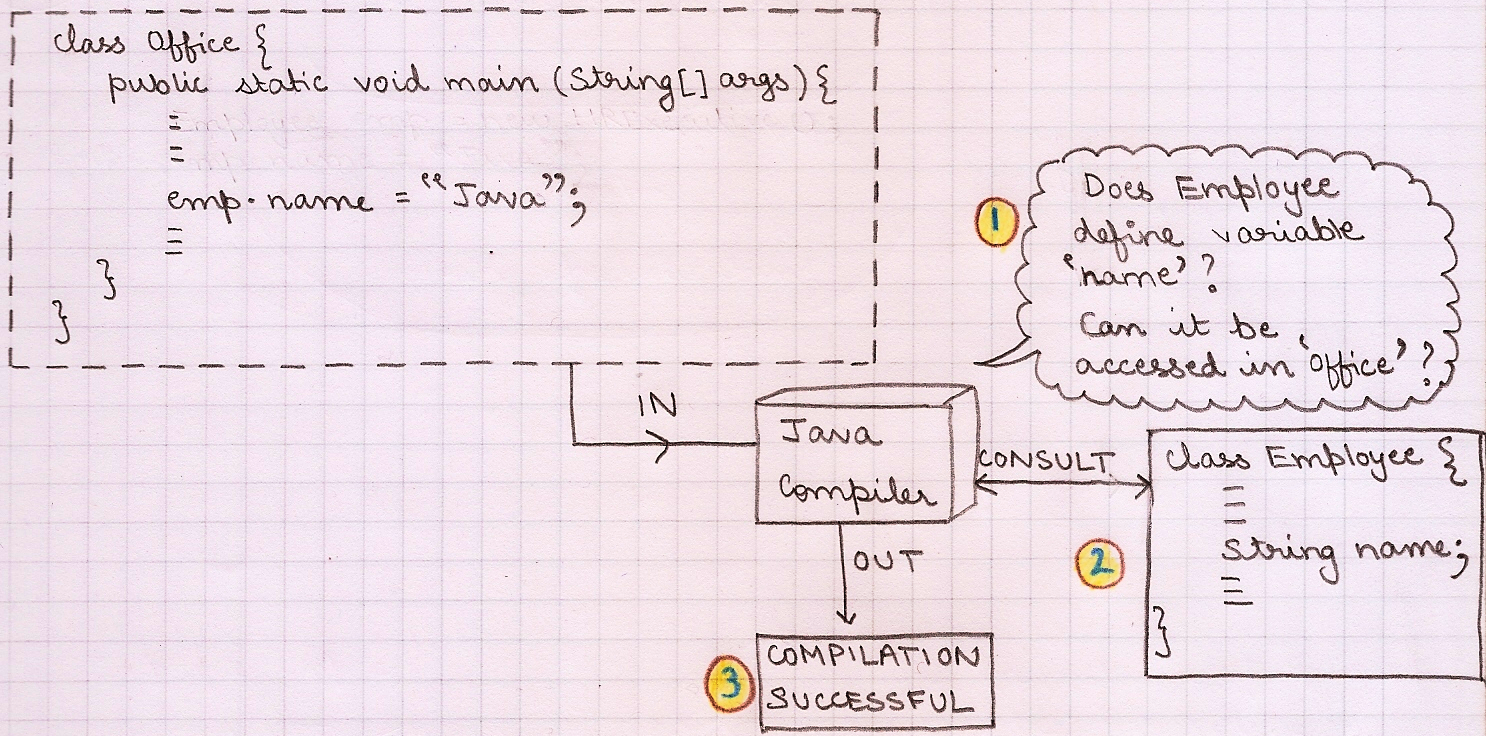 class Office {
public static void main (String[] args) {
emp.name = "Java";
}
}
1
Does Employee
define variable
'name' ?
Can it be
accessed in 'Office' ?
IN
Java
Compiler
CONSULT
class Employee {
String name;
}
2
OUT
3
COMPILATION
SUCCESSFUL